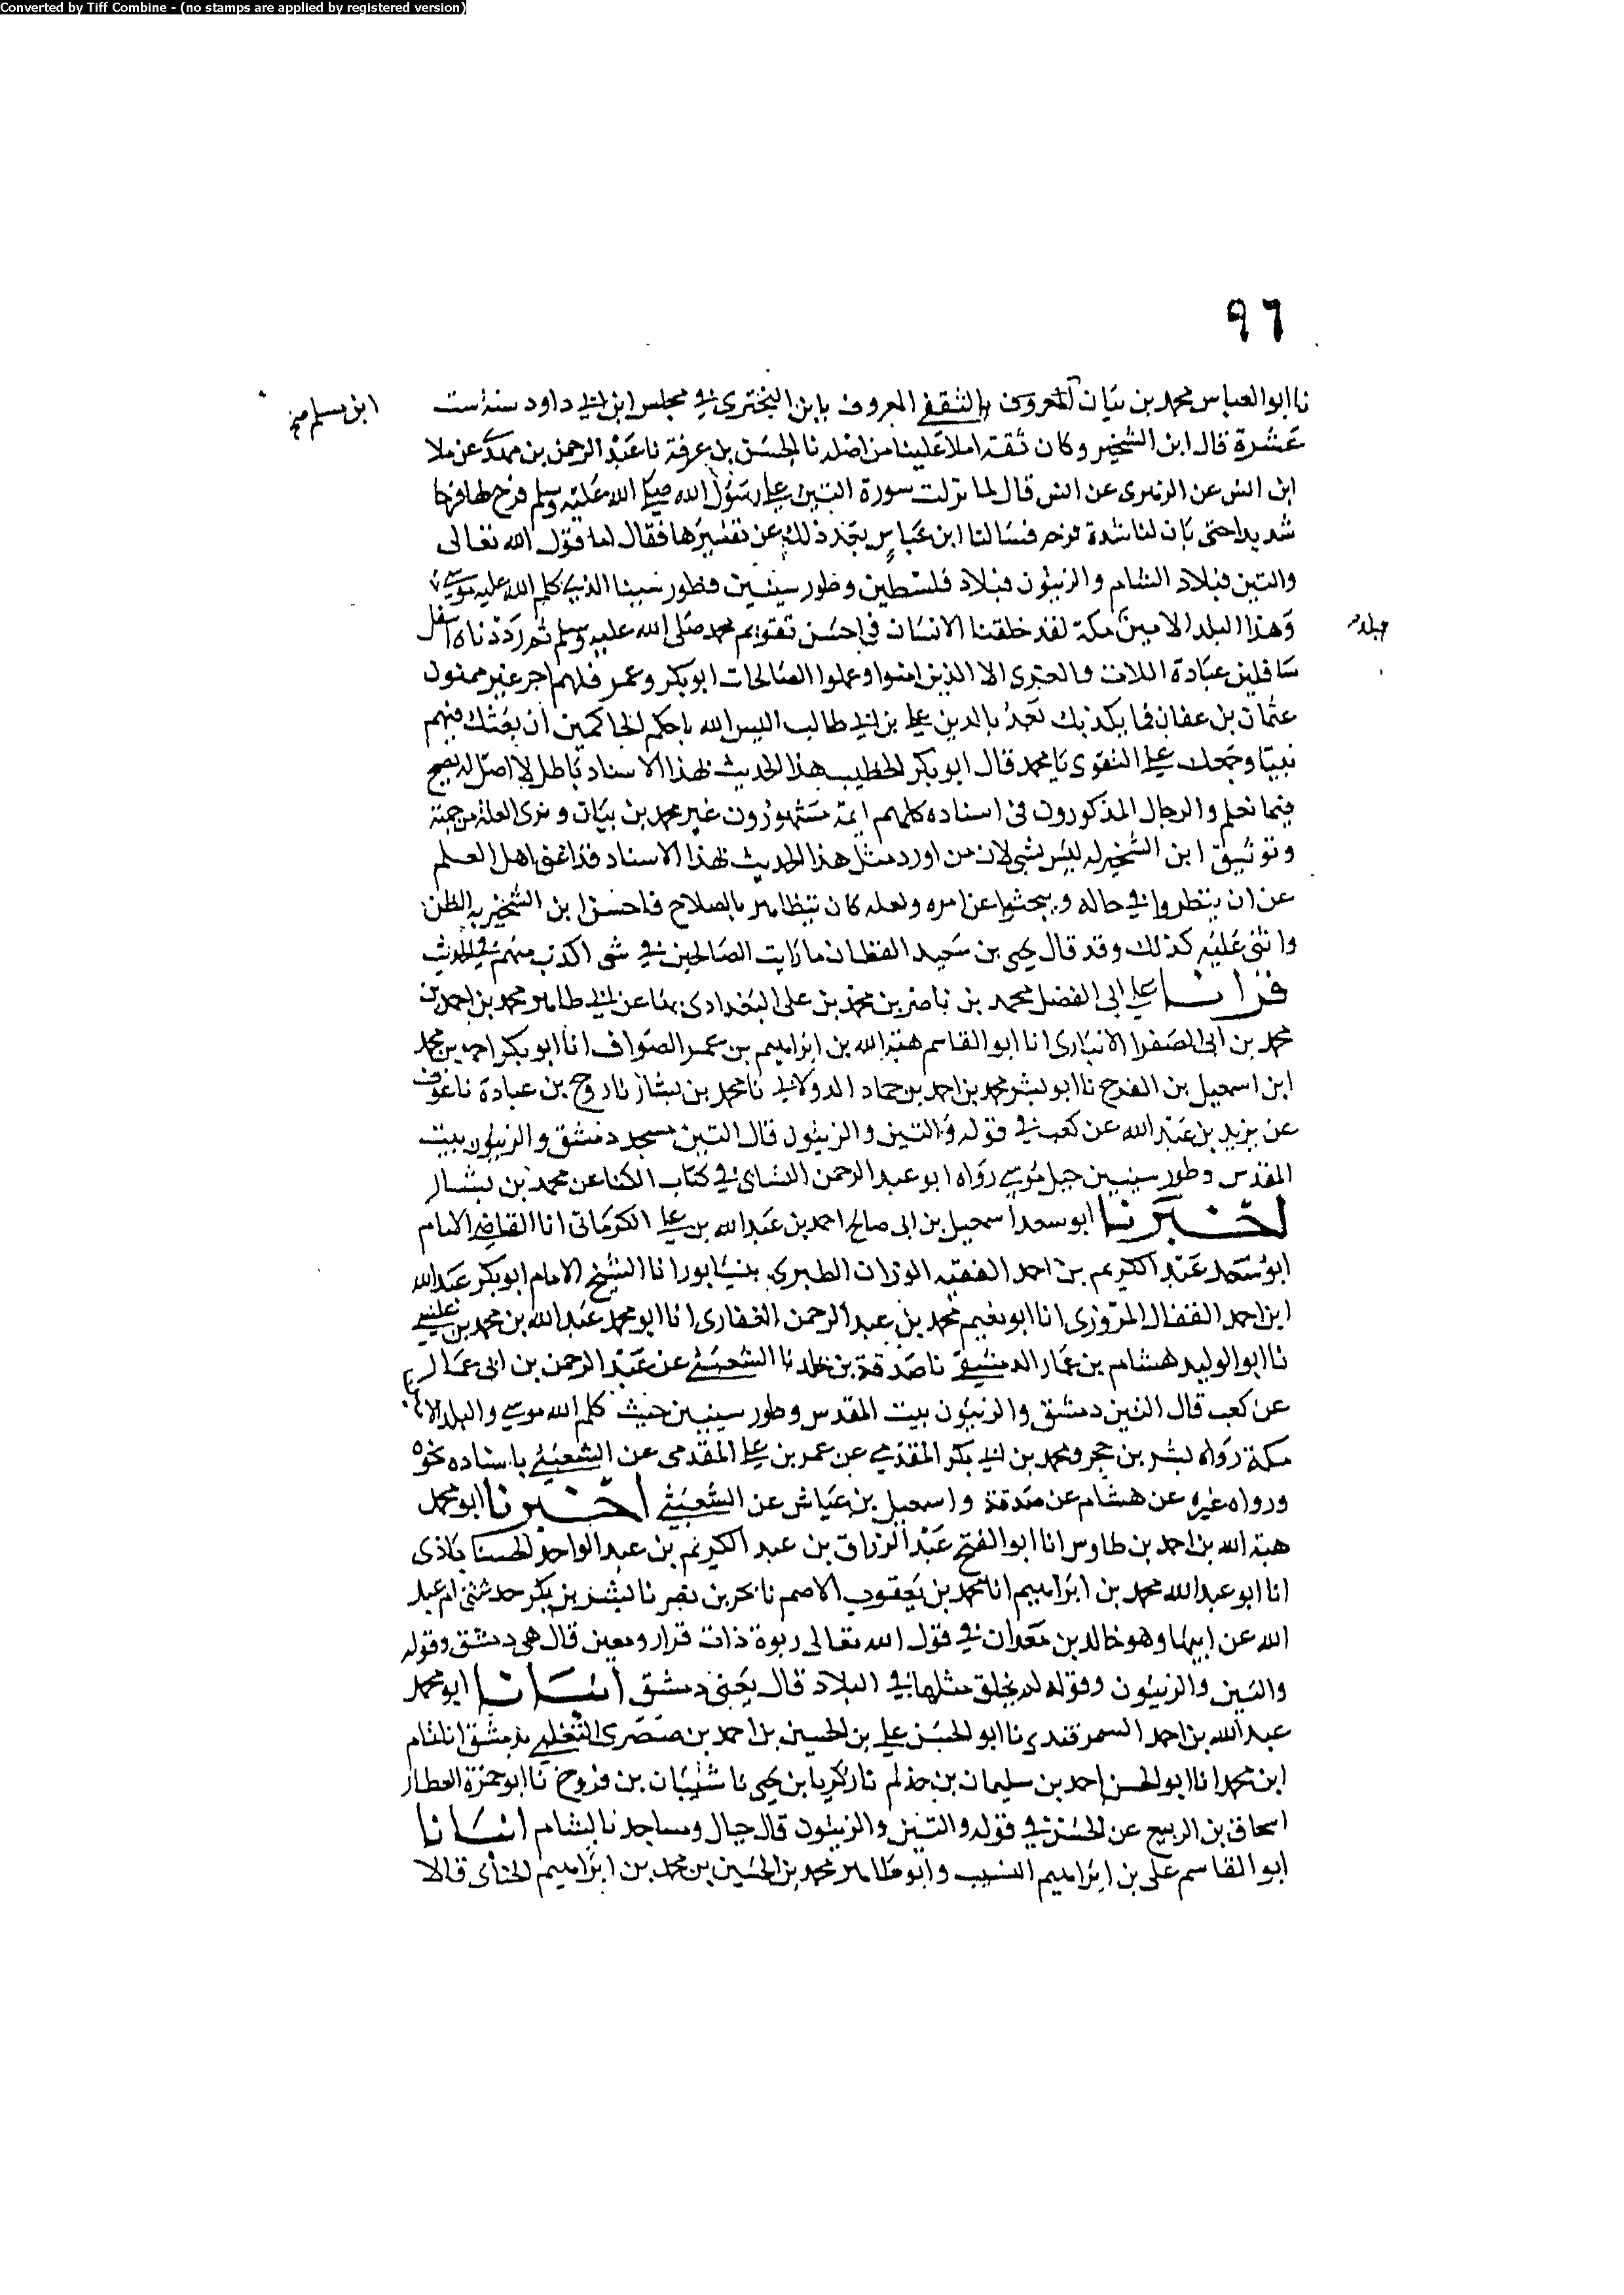 Converted by Tiff Combine - (no stamps are applied by registered version)
٩٦
نا ابو العباس محمد بن بيان المعروف بالثقفي المعروف بابن البختري في مجلس ابن ابي داود سنة ست
ابن مسلم صح
عشرة قال ابن الشخير وكان ثقة املا علينا من اصله نا الحسن بن عرفة نا عبد الرحمن بن مهدي عن ملا
ابن انس عن الزهري عن انس قال لما نزلت سورة التين على رسول الله صلى الله عليه وسلم فرح لها فرحا
شديدا حتى بان لنا شدة فرحه فسالنا ابن عباس بعد ذلك عن تفسيرها فقال اما قول الله تعالى
والتين فبلاد الشام والزيتون فبلاد فلسطين وطور سينين فطور سينا الذي كلم الله عليه موسى
وهذا البلد الامين مكة لقد خلقنا الانسان في احسن تقويم محمد صلى الله عليه وسلم ثم رددناه اسفل
سافلين عبادة اللات والعزى الا الذين امنوا وعملوا الصالحات ابو بكر وعمر فلهم اجر غير ممنون
عثمان بن عفان فما يكذبك بعد بالدين علي بن ابي طالب اليس الله باحكم الحاكمين ان بعثك فيهم
نبيا وجمعك على التقوى يا محمد قال ابو بكر الخطيب هذا الحديث بهذا الاسناد باطل لا اصل له يصح
فيما نعلم والرجال المذكورون في اسناده كلهم ايمة مشهورون غير محمد بن بيان ونرى العلة من جهته
وتوثيق ابن الشخير له ليس بشي لان من اورد مثل هذا الحديث بهذا الاسناد قد اغنى اهل العلم
عن ان ينظروا في حاله ويبحثوا عن امره ولعله كان يتظاهر بالصلاح فاحسن ابن الشخير به الظن
واثنى عليه كذلك وقد قال يحيى بن سعيد القطان ما رايت الصالحين في شي اكذب منهم في الحديث
قرانا على ابي الفضل محمد بن ناصر بن محمد بن علي البغدادي بها عن ابي طاهر محمد بن احمد بن
محمد بن ابي الصقر الانباري انا ابو القاسم هبة الله بن ابراهيم بن عمر الصواف انا ابو بكر احمد بن محمد
ابن اسمعيل بن الفرج نا ابو بشر محمد بن احمد بن حماد الدولابي نا محمد بن بشار نا روح بن عبادة نا عوف
عن يزيد بن عبد الله عن كعب في قوله والتين والزيتون قال التين مسجد دمشق والزيتون بيت
المقدس وطور سينين جبل موسى رواه ابو عبد الرحمن النساي في كتاب الكنا عن محمد بن بشار
اخبرنا ابو سعد اسمعيل بن ابي صالح احمد بن عبد الله بن علي الكرماني انا القاضي الامام
ابو سعد عبد الكريم بن احمد الفقيه الوزان الطبري بنيسابور انا الشيخ الامام ابو بكر عبد الله
ابن احمد القفال المروزي انا ابو نعيم محمد بن عبد الرحمن الغفاري انا ابو محمد عبد الله بن محمد بن عيسى
نا ابو الوليد هشام بن عمار الدمشقي نا صدقة بن خلد نا الشعيثي عن عبد الرحمن بن ابي عمار
عن كعب قال التين دمشق والزيتون بيت المقدس وطور سينين حيث كلم الله موسى والبلد الا
مكة رواه بشر بن حجر ومحمد بن ابي بكر المقدمي عن عمر بن علي المقدمي عن الشعيثي باسناده نحوه
ورواه غيره عن هشام عن صدقة واسمعيل بن عياش عن الشعيثي اخبرنا ابو محمد
هبة الله بن احمد بن طاوس انا ابو الفتح عبد الرزاق بن عبد الكريم بن عبد الواحد الحسناباذي
انا ابو عبد الله محمد بن ابراهيم انا محمد بن يعقوب الاصم نا بحر بن نصر نا بشر بن بكر حدثتني ام عبد
الله عن ابيها وهو خالد بن معدان في قول الله تعالى ربوة ذات قرار ومعين قال هي دمشق وقوله
والتين والزيتون وقوله لم يخلق مثلها في البلاد قال يعني دمشق انبانا ابو محمد
عبد الله بن احمد السمرقندي نا ابو الحسن علي بن الحسين بن احمد بن صصرى التغلبي بدمشق انا تمام
ابن محمد انا ابو الحسن احمد بن سليمان بن حذلم نا زكريا بن يحيى نا شيبان بن فروخ نا ابو حمزة العطار
اسحاق بن الربيع عن الحسن في قوله والتين والزيتون قال جبال ومساجدنا بالشام انبانا
ابو القاسم علي بن ابراهيم النسيب وابو طاهر محمد بن الحسين بن محمد بن ابراهيم الحنائي قالا